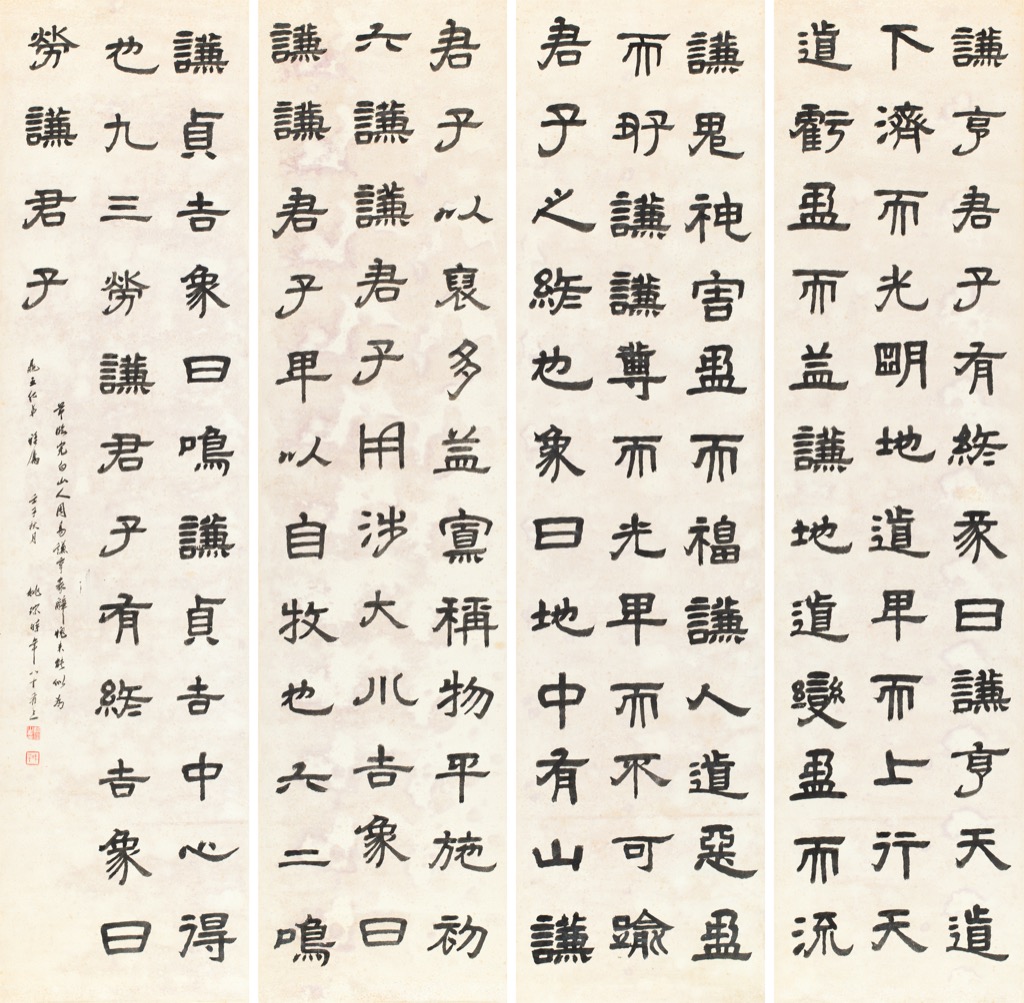 謙亨君子有終彖曰謙亨天道
下濟而光明地道卑而上行天
道虧盈而益謙地道變盈而流
謙鬼神害盈而福謙人道惡盈
而好謙謙尊而光卑而不可踰
君子之終也象曰地中有山謙
君子以裒多益寡稱物平施初
六謙謙君子用涉大川吉象曰
謙謙君子卑以自牧也六二鳴
謙貞吉象曰鳴謙貞吉中心得
也九三勞謙君子有終吉象曰
勞謙君子
完白山人周易謙
壬子秋月 姚琮時年八十有二